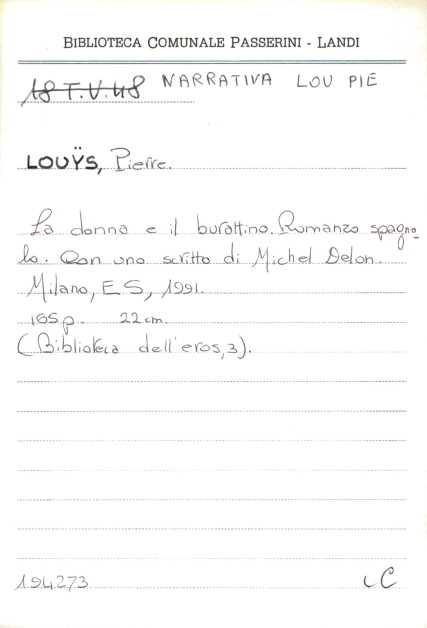 BIBLIOTECA COMUNALE PASSERINI - LANDI
18 T.V.48 NARRATIVA LOU PIE
LOUŸS, Pierre.
La donna e il burattino. Romanzo spagno-
lo. Con uno scritto di Michel Delon.
Milano, ES, 1991.
165 p. 22 cm.
(Biblioteca dell'eros, 3).
194273